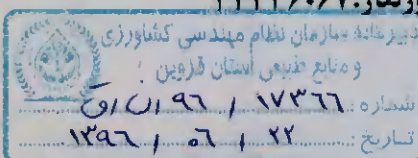 دبیرخانه سازمان نظام مهندسی کشاورزی
و منابع طبیعی استان قزوین
شماره: ۱۷۳۶۶ / ۹۶ /
تاریخ: ۲۲ / ۰۶ / ۱۳۹۶